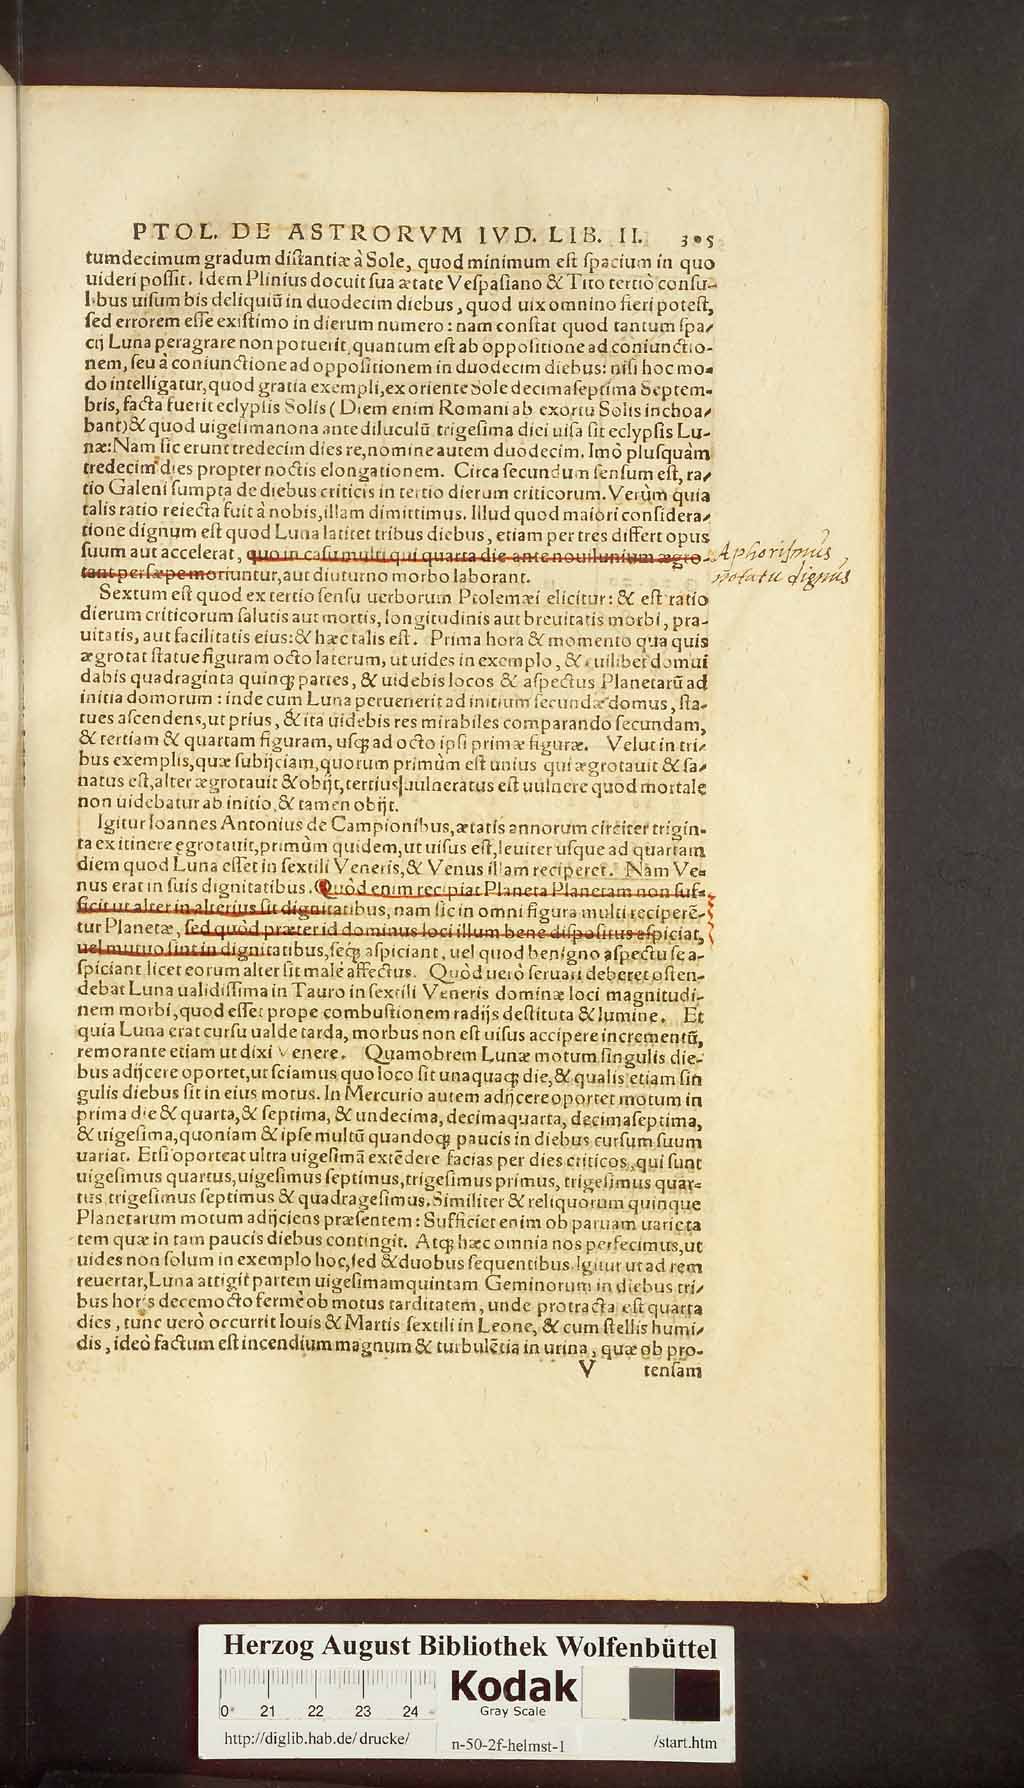 PTOL. DE ASTRORVM IVD. LIB. II. 305
tumdecimum gradum distantiæ à Sole, quod minimum est spacium in quo
uideri possit. Idem Plinius docuit sua ætate Vespasiano & Tito tertiò consu-
libus uisum bis deliquiũ in duodecim diebus, quod uix omnino fieri potest,
sed errorem esse existimo in dierum numero: nam constat quod tantum spa-
cij Luna peragrare non potuerit, quantum est ab oppositione ad coniunctio-
nem, seu à coniunctione ad oppositionem in duodecim diebus: nisi hoc mo-
do intelligatur, quod gratia exempli, ex oriente Sole decimaseptima Septem-
bris, facta fuerit eclypsis Solis (Diem enim Romani ab exortu Solis inchoa-
bant) & quod uigesimanona ante diluculũ trigesima diei uisa sit eclypsis Lu-
næ: Nam sic erunt tredecim dies re, nomine autem duodecim. Imò plusquàm
tredecim dies propter noctis elongationem. Circa secundum sensum est, ra-
tio Galeni sumpta de diebus criticis in tertio dierum criticorum. Verùm quia
talis ratio reiecta fuit à nobis, illam dimittimus. Illud quod maiori considera-
tione dignum est quod Luna latitet tribus diebus, etiam per tres differt opus
suum aut accelerat, quo in casu multi qui quarta die ante nouilunium ægro-
tant persæpe moriuntur, aut diuturno morbo laborant.
Aphorismus
notatu dignus
Sextum est quod ex tertio sensu uerborum Ptolemæi elicitur: & est ratio
dierum criticorum salutis aut mortis, longitudinis aut breuitatis morbi, pra-
uitatis, aut facilitatis eius: & hæc talis est. Prima hora & momento qua quis
ægrotat statue figuram octo laterum, ut uides in exemplo, & cuilibet domui
dabis quadraginta quinq; partes, & uidebis locos & aspectus Planetarũ ad
initia domorum: inde cum Luna peruenerit ad initium secundæ domus, sta-
tues ascendens, ut prius, & ita uidebis res mirabiles comparando secundam,
& tertiam & quartam figuram, usq; ad octo ipsi primæ figuræ. Velut in tri-
bus exemplis, quæ subijciam, quorum primùm est unius qui ægrotauit & sa-
natus est, alter ægrotauit & obijt, tertius uulneratus est uulnere quod mortale
non uidebatur ab initio, & tamen obijt.
Igitur Ioannes Antonius de Campionibus, ætatis annorum circiter trigin-
ta ex itinere ęgrotauit, primùm quidem, ut uisus est, leuiter usque ad quartam
diem quod Luna esset in sextili Veneris, & Venus illam reciperet. Nam Ve-
nus erat in suis dignitatibus. Quòd enim recipiat Planeta Planetam non suf-
ficit ut alter in alterius sit dignitatibus, nam sic in omni figura multi reciperē-
tur Planetæ, sed quòd præter id dominus loci illum bene dispositus aspiciat,
uel mutuo sint in dignitatibus, seq; aspiciant, uel quod benigno aspectu se a-
spiciant licet eorum alter sit malè affectus. Quòd uerò seruari deberet osten-
debat Luna ualidissima in Tauro in sextili Veneris dominæ loci magnitudi-
nem morbi, quod esset prope combustionem radijs destituta & lumine. Et
quia Luna erat cursu ualde tarda, morbus non est uisus accipere incrementũ,
remorante etiam ut dixi Venere. Quamobrem Lunæ motum singulis die-
bus adijcere oportet, ut sciamus quo loco sit unaquaq; die, & qualis etiam sin
gulis diebus sit in eius motus. In Mercurio autem adijcere oportet motum in
prima die & quarta, & septima, & undecima, decimaquarta, decimaseptima,
& uigesima, quoniam & ipse multũ quandoq; paucis in diebus cursum suum
uariat. Etsi oporteat ultra uigesimā extēdere facias per dies criticos, qui sunt
uigesimus quartus, uigesimus septimus, trigesimus primus, trigesimus quar-
tus, trigesimus septimus & quadragesimus. Similiter & reliquorum quinque
Planetarum motum adijciens præsentem: Sufficiet enim ob paruam uarieta
tem quæ in tam paucis diebus contingit. Atq; hæc omnia nos perfecimus, ut
uides non solum in exemplo hoc, sed & duobus sequentibus. Igitur ut ad rem
reuertar, Luna attigit partem uigesimamquintam Geminorum in diebus tri-
bus horis decemocto fermè ob motus tarditatem, unde protracta est quarta
dies, tunc uerò occurrit Iouis & Martis sextili in Leone, & cum stellis humi-
dis, ideò factum est incendium magnum & turbulētia in urina, quæ ob pro-
V tensam
Herzog August Bibliothek Wolfenbüttel
0 21 22 23 24
Kodak
Gray Scale
http://diglib.hab.de/drucke/ n-50-2f-helmst-1 /start.htm